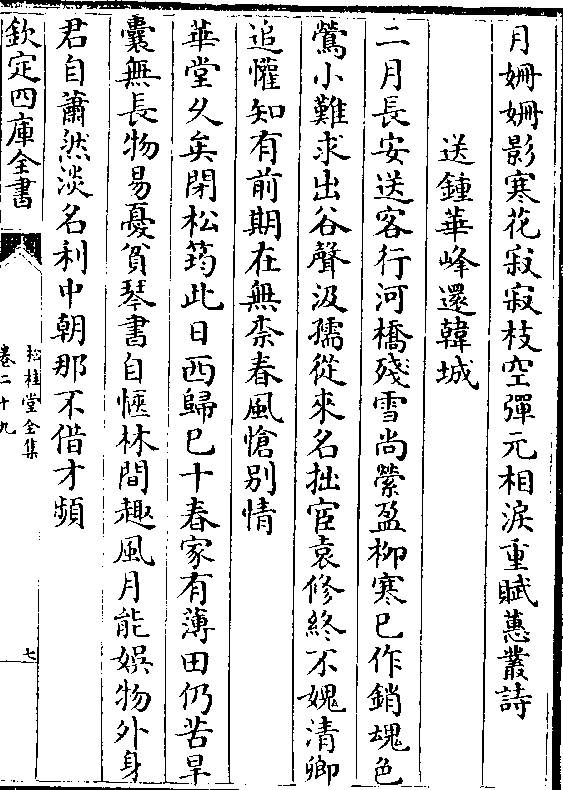 月姍姍影寒花寂寂枝空彈元相淚重賦蕙叢詩
送鍾華峰還韓城
二月長安送客行河橋殘雪尚縈盈柳寒已作銷魂色
鶯小難求出谷聲汲孺從來名拙宦袁修終不媿清卿
追懽知有前期在無柰春風愴别情
華堂乆矣閉松筠此日西歸已十春家有薄田仍苦旱
囊無長物易憂貧琴書自愜林間趣風月能娛物外身
君自蕭然淡名利中朝那不借才頻
欽定四庫全書
松桂堂全集
卷二十九
七